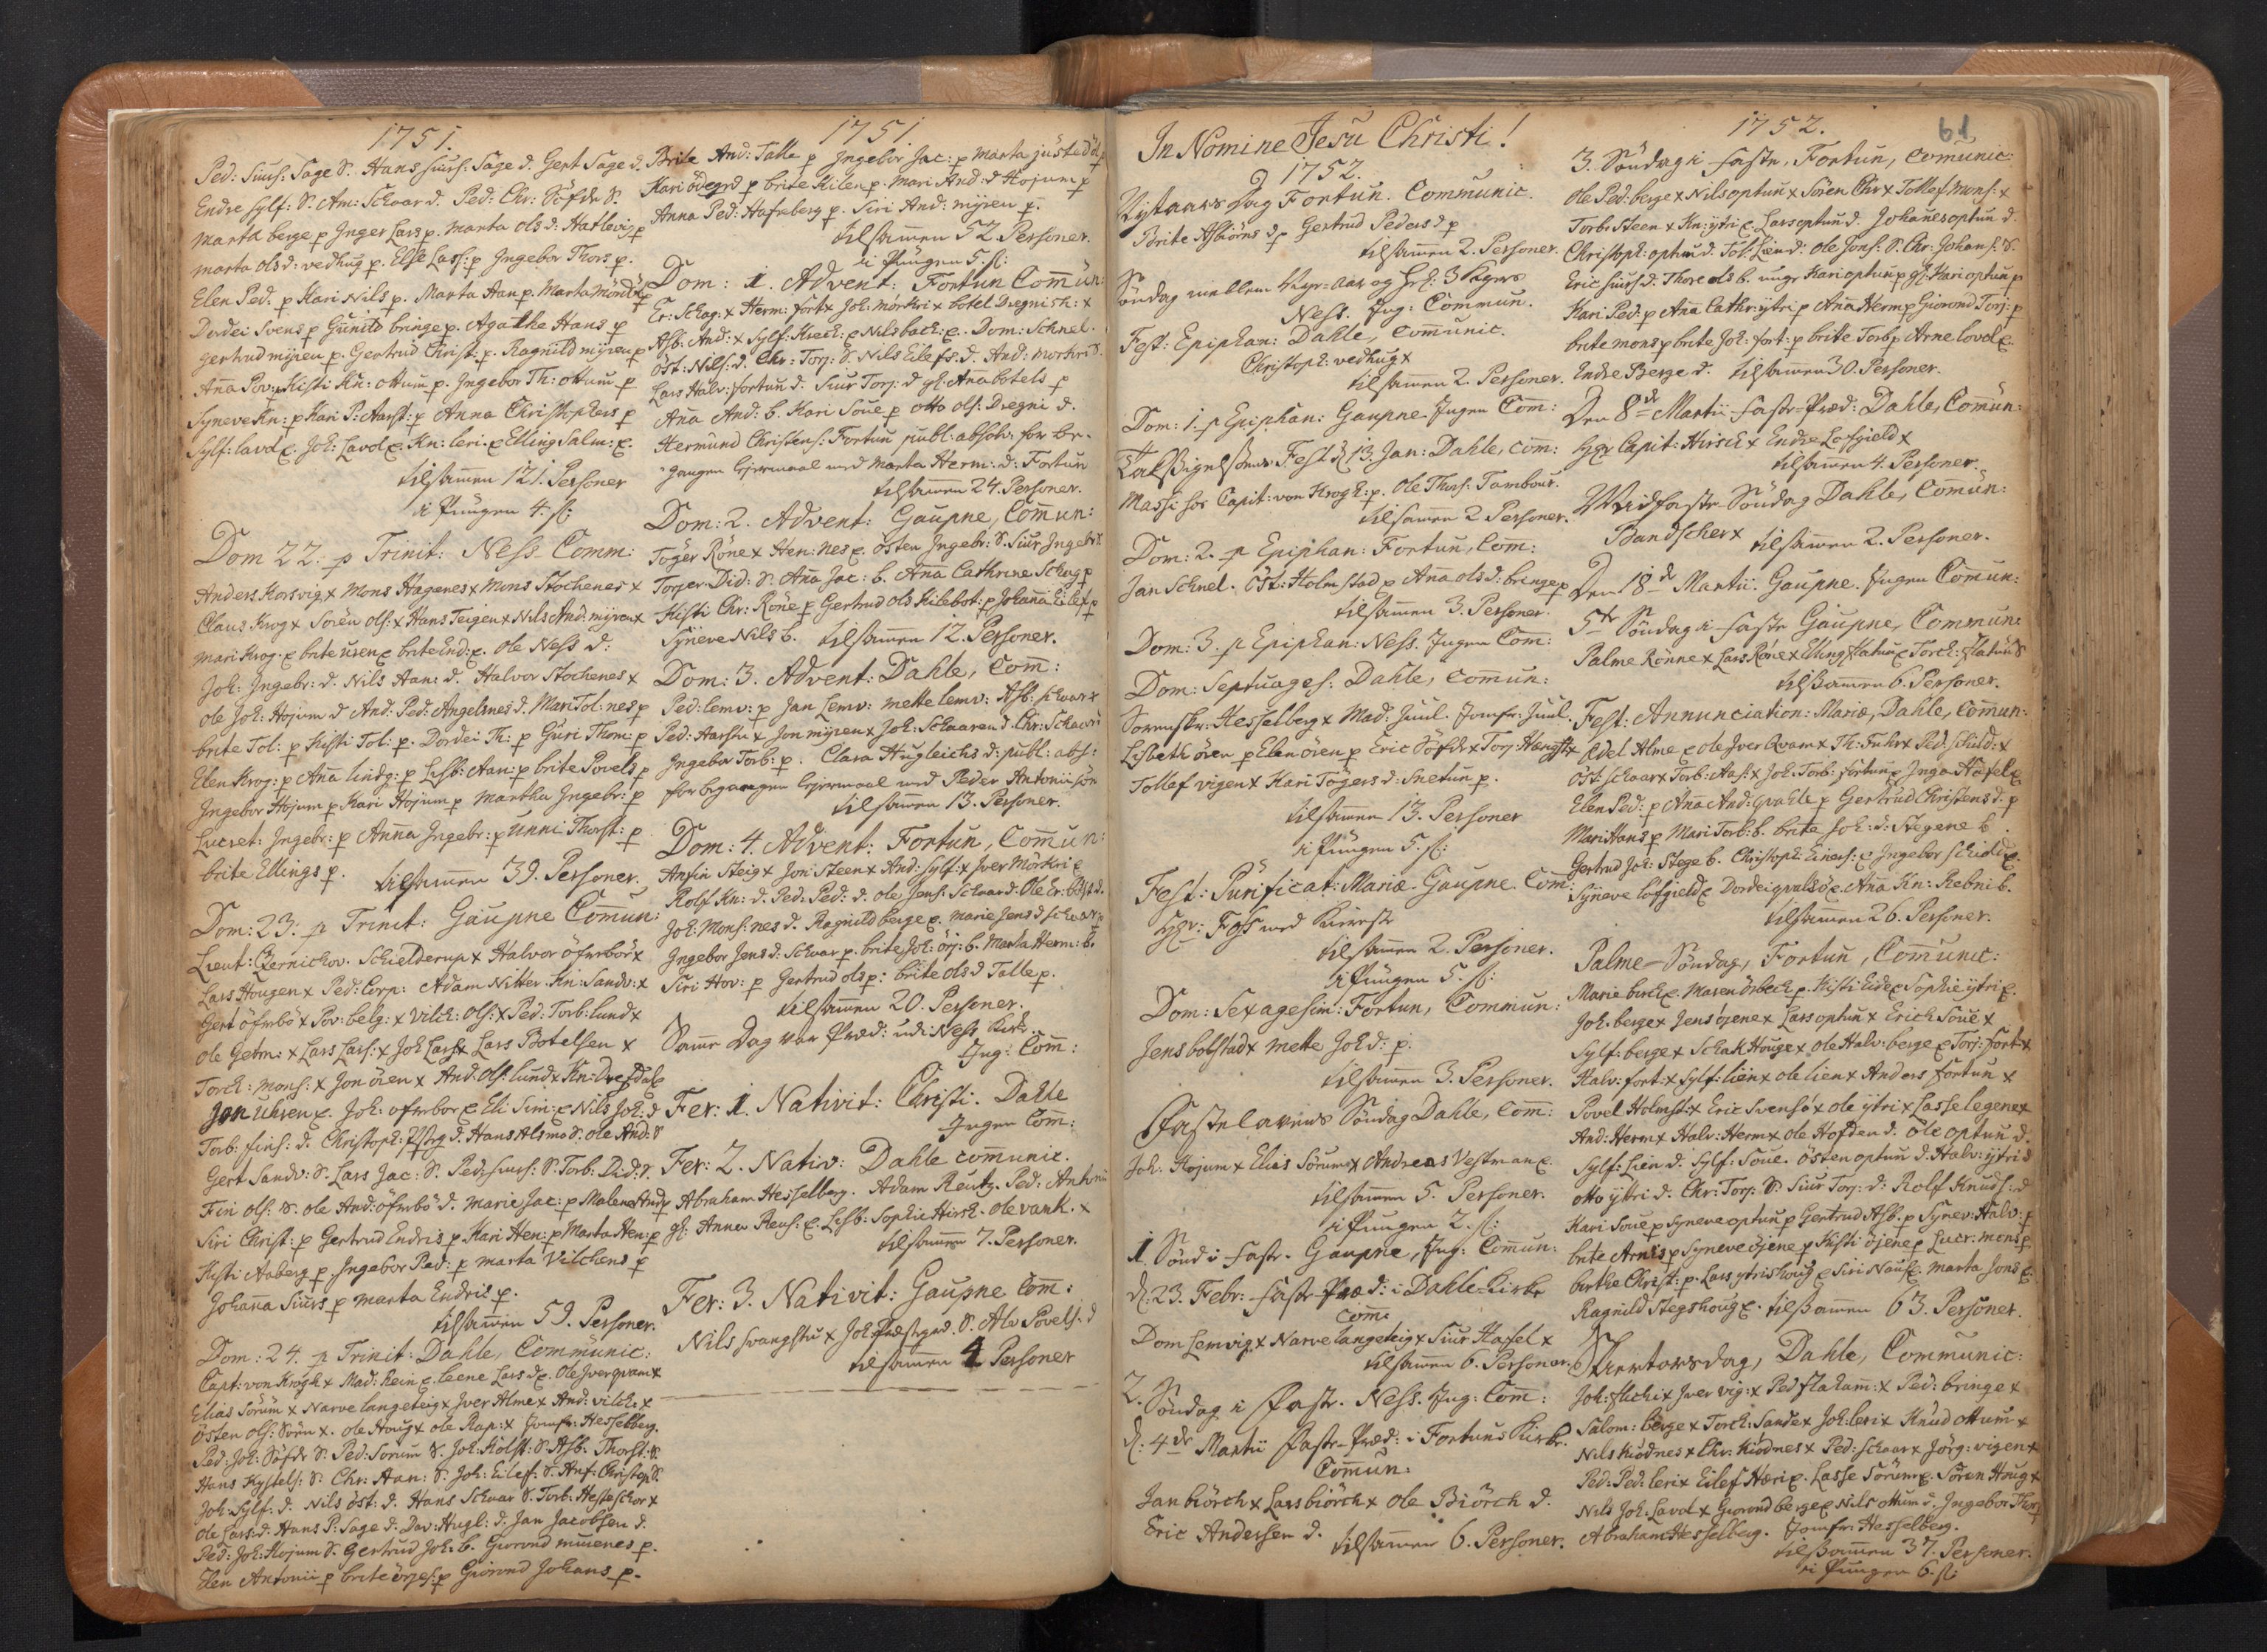 1751.
Ped: Siurs: Sage S. Hans Siurs: Sage d. Gert Sage d.
Endre Sylf: S. Am: Schaar d. Ped: Chr: Söfde S.
Marta berge p Inger Lars p. Marta Ols d: Hatlevig p
Marta Ols d: vedhug p. Else Lass: p Ingebor Thors p.
Elen Ped: p Kari Nils p. Marta Aan p. Marta
Dordei Svens p Gunild bringe p. Agathe Hans p
gertrud myren p. Gertrud Christ: p. Ragnild myren p
Aña Pov: p Kisti Kn: ottum p. Ingebor Th: ottum p
Syneve Kn: p Kari P: Aarst: p Anna Christophers p
Sylf: Lavol x. Joh: Lavol x. Kn: leri x Elling Salm: x.
tilsamen 121. Personer
i Pungen 4 ß:
Dom 22. p Trinit: Ness Comm:
Anders Korsvig x Mons Hagenes x Mons Stochenes x
Claus Krog x Sören Ols: x Hans Teigen x Nils And: myren x
Mari Krog x brite uren x brite End: x. Ole Ness d:
Joh: Ingebr: d. Nils Han: d. Halvor Stochenes x
Ole Joh: Hojum d And: Ped: Angelnes d. Mari Tol: nes p
brite Tol: p Kisti Tol: p. Dordei Th: p Guri Thom: p
Elen Krog: p Aña lindg: p Lisb: Aan: p brite Povels p
Ingebor Hojum p Kari Hojum p Martha Ingebr: p
Lucret: Ingebr: p Anna Ingebr: p Unni Thorst: p
brite Ellings p. tilsamen 39. Personer.
Dom: 23: p Trinit: Gaupne Comun:
Lieut: Zernichov. Schielderup x Halvor öfrebö x
Lars Hougen x Ped: Corp: Adam Nitter. Kn: Sandv: x
Gert öfrebö x Pov: belg: x Vilch: Ols: x Ped: Torb: lund x
Ole Getm: x Lars Lars: x Joh Lars x Lars Botelsen x
Torch: Mons: x Jon ören x And: Ols: lund x Kn: Drefsdal x
Jon Uhren x. Joh: öfrebö x Eli Sim: x Nils Joh: d
Torb: fins: d. Christoph: d. Hans Alsmo S: Ole And: S
Gert Sandv: S. Lars Jac: S. Ped: Siurs: S. Torb: Did: S.
Fin Ols: S. Ole And: öfrebö d. Marie Jac: p Malene And p
Siri Christ: p Gertrud Endris p. Kari Hen: p Marta Hen: p
Kisti Aaberg p Ingebor Ped: p Marta Vilchens p
Johana Siurs p Marta Endris p.
tilsamen 59. Personer.
Dom: 24. p Trinit: Dahle, Communic:
Capt: von Krogh x Mad: hein x leene Lars d x. Ole Iver qvam x
Elias Sörum x Narve langeteig x Iver Alme x And: vilch: x
Östen Ols: Sörn x. Ole Houg x Ole Rap: x Jomfr: Hesselberg.
Ped: Joh: Söfde S. Ped: Sorum S. Joh: Holst: S. Asb: Thorst: S.
Hans Kystels: S. Chr: Aan: S. Joh: Eilef: S. Anf: Christop S.
Joh: Sylf: d. Nils Öst: d. Hans Schaar S. Torb: Hesteschor x
Ole Lars: d. Hans P: Sage d. Dav: Hugl: d. Jan Jacobsen d.
Ped: Joh: Hojum S. Gertrud Joh: b. Giorond muenes p.
Elen Antonii p brite örjes: p Giorond Johans p.
1751.
Brite And: Talle p Ingebor Jac: p Marta justedöl p
Kari ödegrd p brite Kilen p. Mari And: d Hojum p
Anna Ped: Hafreberg p. Siri And: myren p.
tilsamen 52 Personer.
i Pungen 5. ß:
Dom: 1. Advent: Fortun Comun:
Er: Schag: x Herm: fort x Joh: Morkri x botel Dregnisk: x
Asb: And: x Sylf: Kreck: x Nilsbach: x. Dom: Schnel.
öst: Nils: d. Chr: Torj: S. Nils Eilefs: d. And: Morkri S.
Lars Halv: fortun d. Siur Torj: d gl: Aña botels p
Aña And: b. Kari Soue p Otto Ols: Dregni d.
Hermund Christens: Fortun publ: absolv: for be-
gangen lejermaal med Marta Herm: d: Fortun
tilsamen 24. Personer.
Dom: 2. Advent: Gaupne, Comun:
Töger Röne x Hen: Nes x. Östen Ingebr: S. Siur Ingebr S
Torger Did: S. Aña Jac: b. Aña Cathrine Schug p
Kisti Chr: Röne p Gertrud Ols Kilebot: p Johana Eilef p
Syneve Nils b. tilsamen 12. Personer.
Dom: 3. Advent: Dahle, Com:
Ped: lemv: p Jan Lemv: mette lemv: Asb: schaar x
Ped: Aarsh x Jon myren x Joh: Schaaren d. Chr: Schaar
Ingebor Torb: p. Clara Hugleichs d: publ: abs:
for begangen lejermaal med Peder Antoniisön
tilsamen 13. Personer.
Dom: 4. Advent: Fortun, Comun:
Anfin Steig x Jon Steen x And: Sylf: x Iver Mörkri x
Rolf Kn: d. Ped: Ped: d. Ole Jens: Schaar d. Ole Er:
Joh: Mons: nes d. Ragnild berge x. Marie Jens d schaar p
Ingebor Jens d: Schaar p. brite Joh: örj: b. Marta Herm: b.
Siri Hov: p Gertrud Ols p: brite Ols d Talle p.
tilsamen 20. Personer.
Same Dag var Præd: udi Ness Kirk
Ing: Com:
Fer: 1. Nativit: Christi. Dahle
Ingen Com:
Fer: 2. Nativ: Dahle Comunic.
Abraham Hesselberg. Adam Reutz. Ped: Antonii
gl: Anna Rens: x. Lisb: Sophie Hirsh. Ole vank. x
tilsamen 7. Personer.
Fer: 3. Nativit: Gaupne Com:
Nils svangstu x Joh Præstegrd. S. Alv Povels: d
tilsamen 4 Personer
In Nomine Jesu Christi!
1752.
Nytaars Dag Fortun. Communic.
Brite Asbiörns d p Gertrud Peders d p
tilsamen 2. Personer.
Söndag mellem Nyt-aar og Hel: 3 Kgers
Ness. Ing: Commun.
Fest: Epiphan: Dahle, Comunic.
Christoph: vedhug x
tilsamen 2. Personer.
Dom: 1. p Epiphan: Gaupne. Ingen Com:
Taksigelsens Fest d 13. Jan: Dahle, Com:
Massi hos Capit: von Krogh: p. Ole Thors: Tambour.
tilsamen 2 Personer.
Dom: 2. p Epiphan: Fortun, Com:
Jan Schnel. Öst: Holmstad p Aña Ols d: bringe p
tilsamen 3. Personer.
Dom: 3. p Epiphan: Ness. Ingen Com:
Dom: Septuages: Dahle, Comun:
Sorenskr: Hesselberg x Mad: Juul. Jomfr: Juul.
Lisbeth ören p Elen ören p Eric Söfde x Torj Hængst x
Tollef vigen x Kari Tögers d: Snetun p.
tilsamen 13. Personer
i Pungen 5. ß:
Fest: Purificat: Mariæ. Gaupne. Com:
Hr: Foss med Kiæreste
tilsamen 2. Personer.
i Pungen 5. ß:
Dom: Sexagesim: Fortun, Commun:
Jens bolstad x Mette Joh d: p.
tilsamen 3. Personer.
Fastelavens Söndag Dahle, Com:
Joh: Hojum x Elias Sörum x Andreas Vestman x.
tilsamen 5. Personer.
i Pungen 2. ß:
1. Sönd i Faste. Gaupne, Ing: Comun:
d: 23. Febr: Faste-Præd: i Dahle-Kirke
Com:
Dom Lemvig x Narve langeteig x Siur Hasel x
tilsamen 6. Personer.
2. Söndag i Faste. Ness. Ing: Com:
d: 4de Martii Faste-Præd: i Fortuns Kirke.
Comun:
Jan biörch x Lars biörch x Ole Biörch d.
Eric Andersen d. tilsamen 6. Personer.
1752.
61
3. Söndag i Faste, Fortun, Comunic:
Ole Ped: berge x Nils optun x Sören Chr x Tollef Mons: x
Torb: Steen x Kn: ytri x. Lars optun d. Johanes optun d.
Christoph: optun d. Tol: Lien d: Ole Jons: S. Chr: Johans: S.
Eric Siurs d. Thore Ols b. unge Kari optun p gl: Kari optun p
Kari Ped: p Aña Cathr: ytri p Aña Herm p Giorond Torj: p
brite Mons p brite Joh: fort: p britte Torb p Arne lovol x.
Endre Berge d. tilsamen 30. Personer.
Den 8de Martii Faste-Præd: Dahle, Comun:
Hr Capit: Hirsch x Endre Lofgield x
tilsamen 4. Personer.
Midfaste-Söndag Dahle, Comun:
Bandscher x tilsamen 2. Personer.
Den 18de Martii. Gaupne. Ingen Comun:
5te Söndag i Faste Gaupne, Commun:
Palme Rönne x Lars Röne x Elling flatun x Torch: flatun S
tilsamen 6. Personer.
Fest: Annunciation: Mariæ, Dahle, Comun:
Edel Alme x Ole Iver Qvam x Th: Fuhr x Ped: schild: x
Öst: schaar x Torb: Aas: x Joh: Torb: fortun p Inga Hasel x
Elen Ped: p Aña And: qvahle p Gertrud Christens d. p
Mari Hans p Mari Torb: b. brite Joh: d: Stegene b.
Gertrud Joh: Stege b. Christoph: Einers: x Ingebor schield x.
Syneve lofgield x Dordei qvalsö x. Aña Kn: Rebni b.
tilsamen 26. Personer.
Palme-Söndag, Fortun, Comunic:
Marie birch x. Maren örbech p. Kisti Eide x Sophie ytri x.
Joh: berge x Jens öjene x Lars optun x Erich Soue x
Sylf: berge x Schak Houge x Ole Halv: berge x Torj: fort: x
Halv: fort: x Sylf: lien x Ole lien x Anders fortun x
Povel Holmst: x Eric Svensö x Ole ytri x Lasse legene x
And: Herm x Halv: Herm x Ole Hofden d. Ole optun d.
Sylf: Lien d. Sylf: Soue. Östen optun d. Halv: ytri d
Otto ytri d. Chr: Torj: S. Siur Torj: d: Rolf Knuds: d
Kari Soue p Syneve optun p Gertrud Asb: p Synev: Halv: p
brite Arnis p Syneve öjene p Kisti öjene p Lucr: Mons p
birthe Christ: p. Lars ytrishoug x Siri Naus x. Marta Jons x:
Ragnild Stegshoug x. tilsamen 63. Personer.
Skiertorsdag, Dahle, Communic:
Joh: flichi x Iver vig: x Ped flaham: x Ped: bringe x
Salom: berge x Torch: Sande x Joh: leri x Knud ottum x
Nils Kiödnes x Chr: Kiödnes x Ped: schaar x Jörg: vigen x
Ped: Ped: leri x Eilef Hæri x. Lasse Sörum x. Sören Houg x
Nils Joh: Lavol x Giorond berge x Nils ottum d. Ingebor Thor p
Abraham Hesselberg. Jomfr: Hesselberg.
tilsamen 37. Personer.
i Pungen 6. ß: